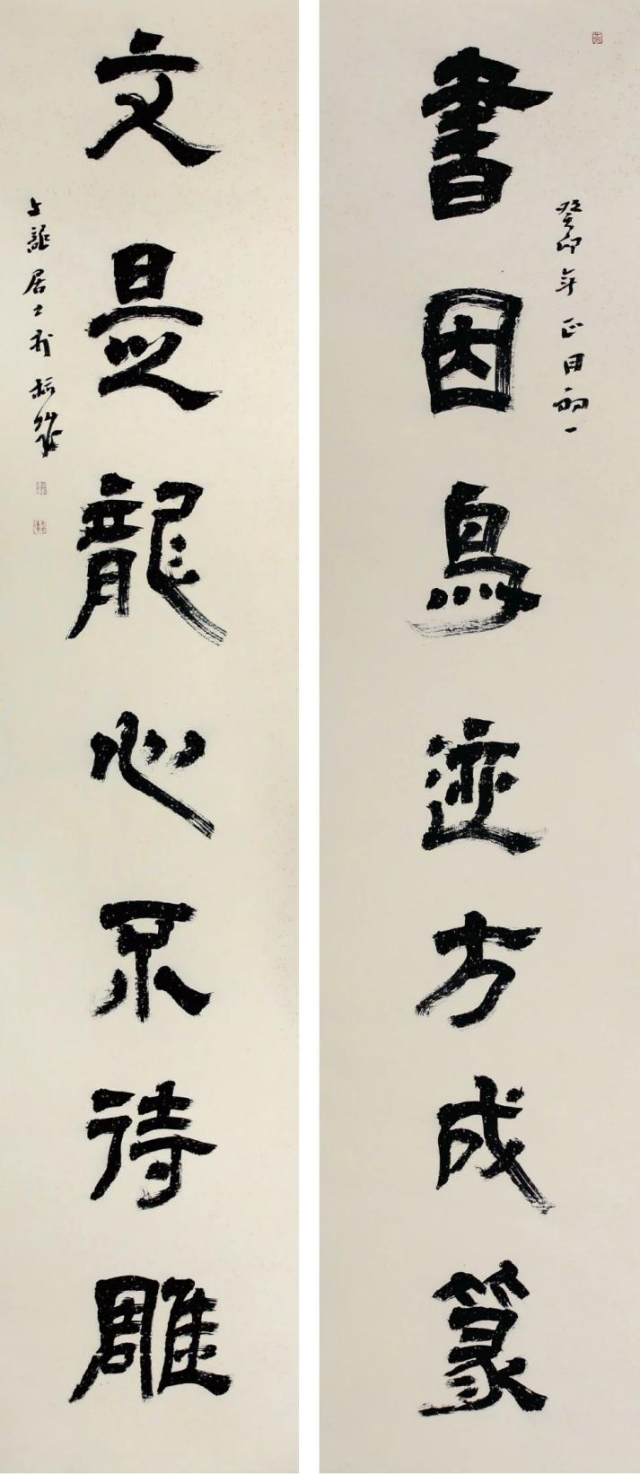 書因鳥迹方成篆
癸卯年正月初一
文是龍心不待雕
居士